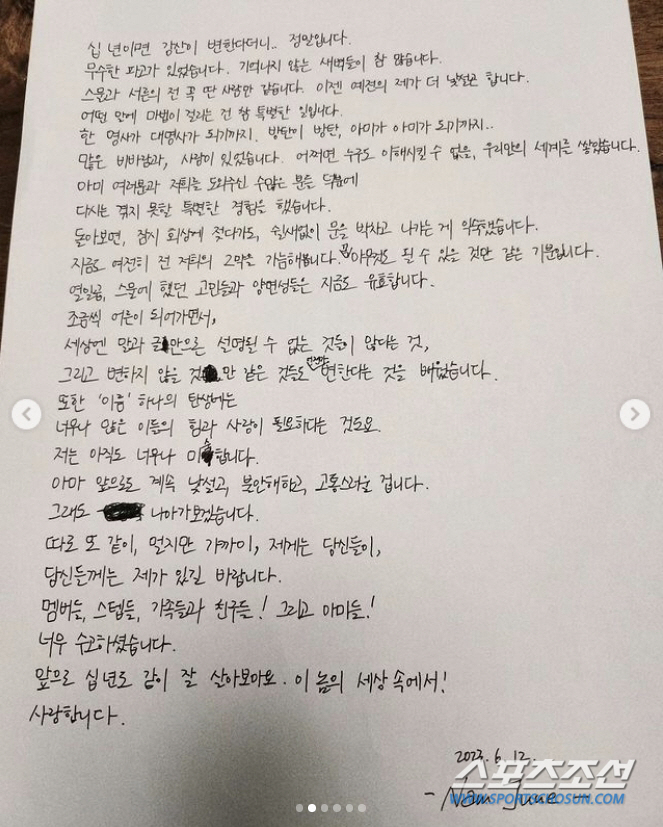 십 년이면 강산이 변한다더니.. 정말입니다.
무수한 파고가 있었습니다. 기억나지 않는 새벽들이 참 많습니다.
스물과 서른의 전 꼭 딴 사람만 같습니다. 이젠 예전의 제가 더 낯설곤 합니다.
어떤 안에 마법이 걸리는 건 참 특별한 일입니다.
한 명사가 대명사가 되기까지. 방탄이 방탄, 아미가 아미가 되기까지..
많은 비바람과, 사랑이 있었습니다. 어쩌면 누구도 이해시킬 수 없을, 우리만의 세계를 쌓았습니다.
아미 여러분과 저희를 도와주신 수많은 분들 덕분에
다시는 겪지 못할 특별한 경험을 했습니다.
돌아보면, 잠시 회상에 젖다가도, 쉴새없이 문을 박차고 나가는 게 익숙했습니다.
지금도 여전히 전 저희의 2막을 가늠해봅니다. 꼭 아무것도 될 수 있을 것만 같은 기분입니다.
열일곱, 스물에 했던 고민들과 양면성들은 지금도 유효합니다.
조금씩 어른이 되어가면서,
세상엔 말과 글만으론 설명될 수 없는 것들이 많다는 것,
그리고 변하지 않을 것만 같은 것들도 변한다는 것을 배웠습니다.
또한 '이름' 하나의 탄생에는
너무나 많은 이들의 힘과 사랑이 필요하다는 것도요.
저는 아직도 너무나 미숙합니다.
아마 앞으로도 계속 낯설고, 불안해하고, 고통스러울 겁니다.
그래도 나아가보겠습니다.
따로 또 같이, 멀지만 가까이, 제게는 당신들이,
당신들께는 제가 있길 바랍니다.
멤버들, 스텝들, 가족들과 친구들! 그리고 아미들!
너무 수고하셨습니다.
앞으로 십 년도 같이 잘 살아보아요. 이 놈의 세상 속에서!
사랑합니다.
2023. 6. 12.
- Nam June -
스포츠조선
WWW.SPORTSCHOSUN.COM